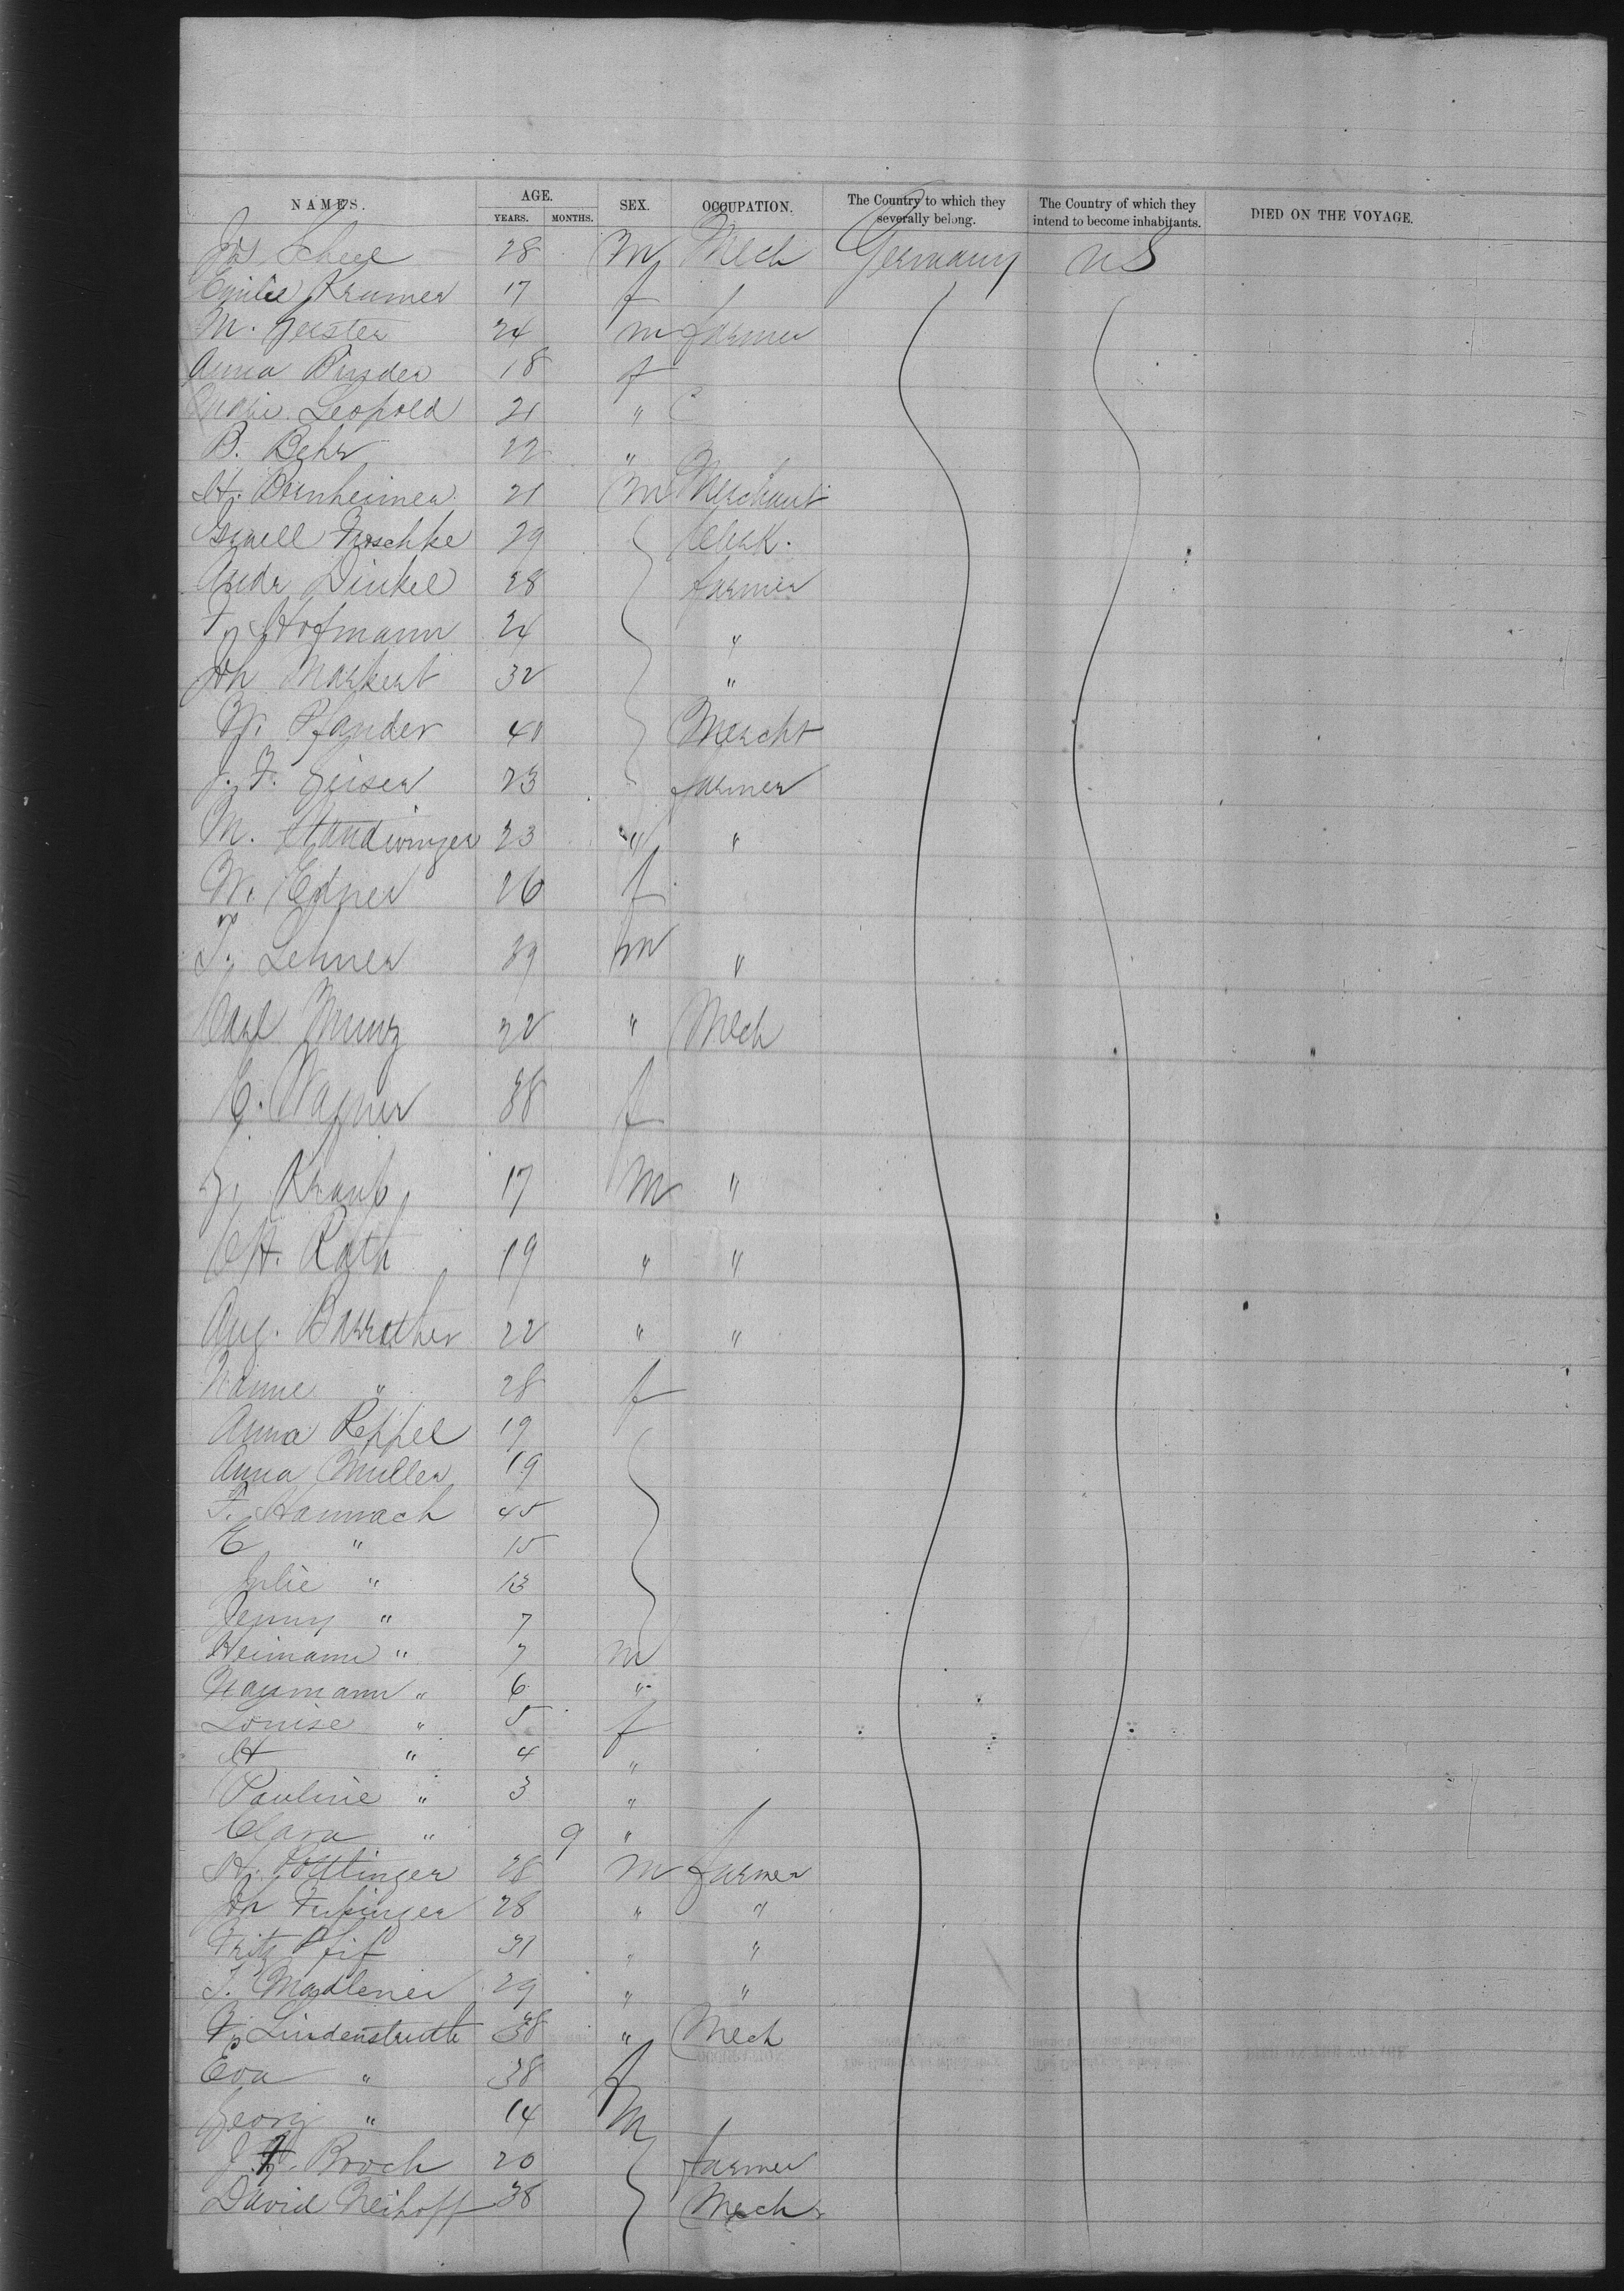 NAMES. AGE. SEX. OCCUPATION. The Country to which they severally belong. The Country of which they intend to become inhabitants. DIED ON THE VOYAGE.
YEARS. MONTHS.
Jos Scheel 28 M Mech Germany US
Emilie Kramer 17 f
M. Geister 24 m farmer
Anna Binder 18 f
Leopold 21 "
B. Behr 22 "
H. Bernheimer 21 M Merchant
Froschke 29 Clerk.
Andr Dinkel 28 farmer
F. Hofmann 24 "
Joh Markert 32 "
W. Pfander 40 Mercht
J. F. Geiser 23 farmer
M. Standwinger 23 " "
W. Edner 26 f
F. Lehner 39 m "
Carl Munz 32 " Mech
C. Wagner 38 f
G. Kraub 17 M "
CH. Roth 19 " "
Aug. Barrother 22 " "
Nanne " 28 f
Anna Reppel 19
Anna Muller 19
F. Hannach 45
E " 15
Julie " 13
Jenny " 7
Heimann " 7 m
Naumann " 6 "
Louise " 5 f
H " 4 "
Pauline " 3 "
Clara " 9 "
H. Gottlinger 28 M farmer
Joh 28 " "
Fritz Pfif 31 " "
J. Madlener 29 " "
F. Lindenstruth 38 " Mech
Eva " 38 f
Georg " 14 M
J. H. Broch 20 farmer
David Neihoff 38 Mech